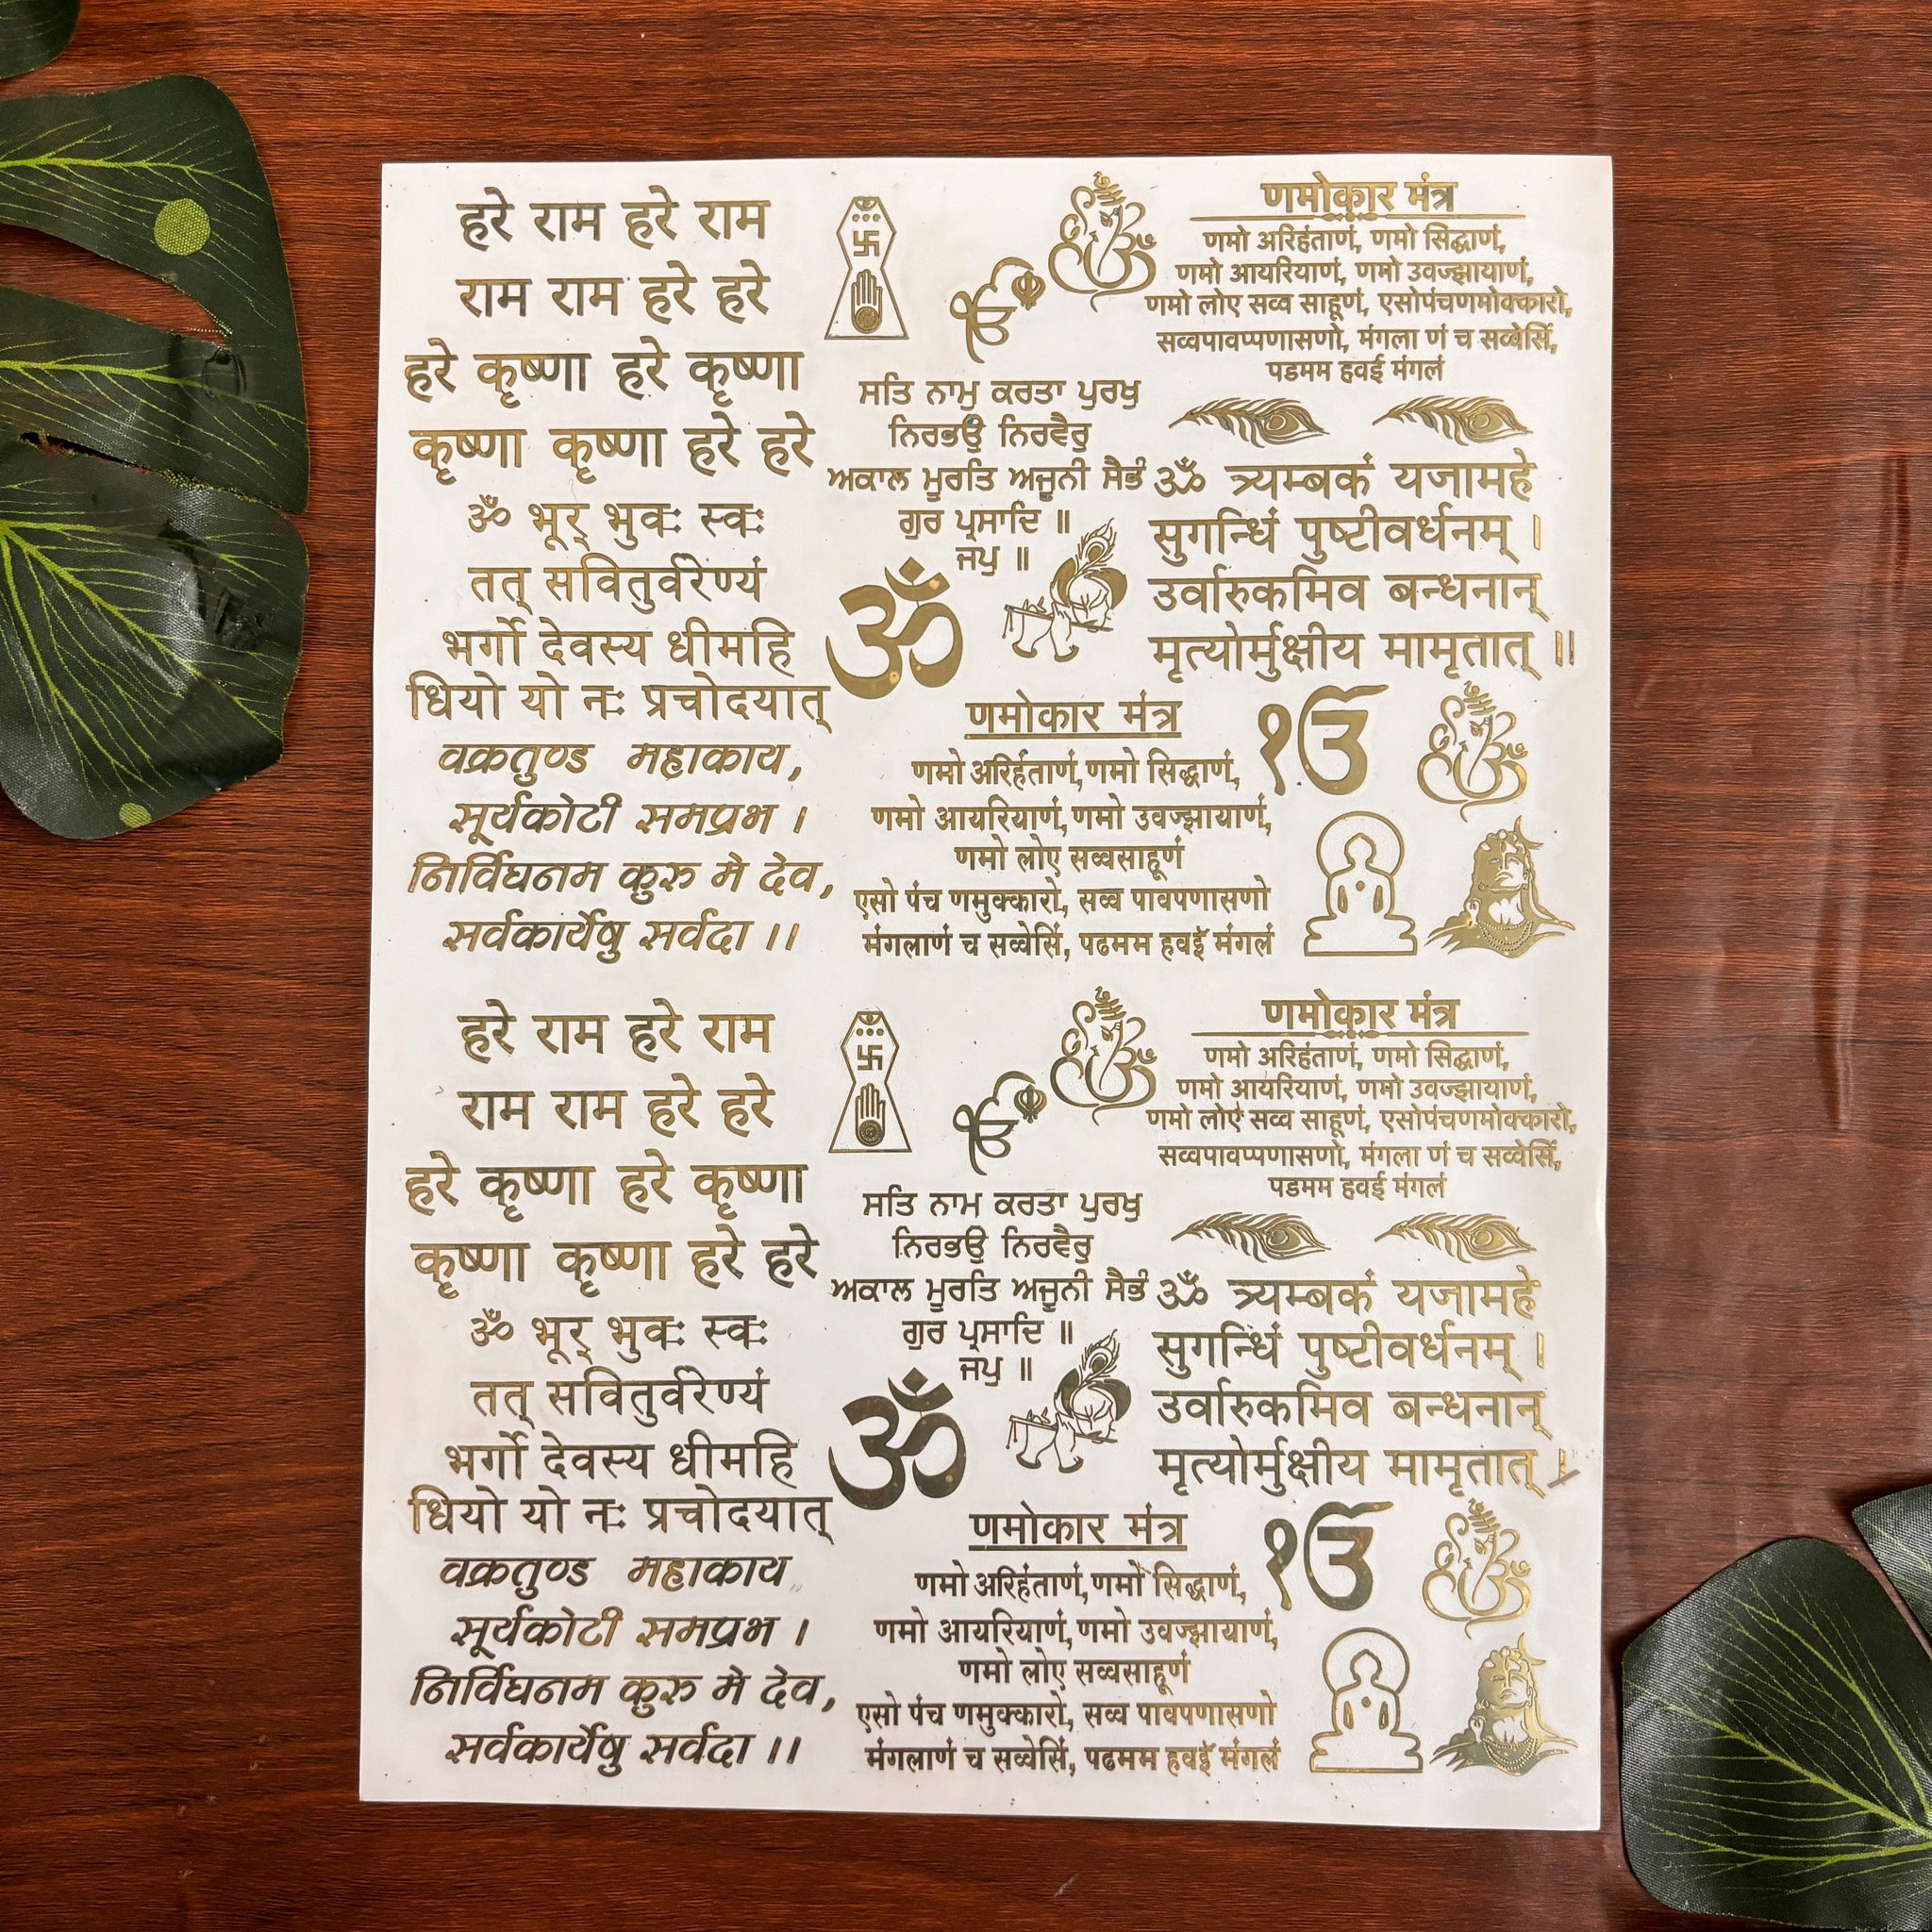 हरे राम हरे राम
राम राम हरे हरे
हरे कृष्णा हरे कृष्णा
कृष्णा कृष्णा हरे हरे
ॐ भूर् भुवः स्वः
तत् सवितुर्वरेण्यं
भर्गो देवस्य धीमहि
धियो यो नः प्रचोदयात्
वक्रतुण्ड महाकाय,
सूर्यकोटी समप्रभ ।
निर्विघनम कुरु मे देव,
सर्वकार्येषु सर्वदा ।।
ੴ
ਸਤਿ ਨਾਮੁ ਕਰਤਾ ਪੁਰਖੁ
ਨਿਰਭਉ ਨਿਰਵੈਰੁ
ਅਕਾਲ ਮੂਰਤਿ ਅਜੂਨੀ ਸੈਭੰ
ਗੁਰ ਪ੍ਰਸਾਦਿ ॥
ਜਪੁ ॥
ॐ
णमोकार मंत्र
णमो अरिहंताणं, णमो सिद्धाणं,
णमो आयरियाणं, णमो उवज्झायाणं,
णमो लोए सव्वसाहूणं
एसो पंच णमुक्कारो, सव्व पावपणासणो
मंगलाणं च सव्वेसिं, पढमम हवई मंगलं
णमोकार मंत्र
णमो अरिहंताणं, णमो सिद्धाणं,
णमो आयरियाणं, णमो उवज्झायाणं,
णमो लोए सव्व साहूणं, एसोपंचणमोक्कारो,
सव्वपावप्पणासणो, मंगला णं च सव्वेसिं,
पडमम हवई मंगलं
ॐ त्र्यम्बकं यजामहे
सुगन्धिं पुष्टीवर्धनम् ।
उर्वारुकमिव बन्धनान्
मृत्योर्मुक्षीय मामृतात् ॥
ੴ
हरे राम हरे राम
राम राम हरे हरे
हरे कृष्णा हरे कृष्णा
कृष्णा कृष्णा हरे हरे
ॐ भूर् भुवः स्वः
तत् सवितुर्वरेण्यं
भर्गो देवस्य धीमहि
धियो यो नः प्रचोदयात्
वक्रतुण्ड महाकाय
सूर्यकोटी समप्रभ ।
निर्विघनम कुरु मे देव,
सर्वकार्येषु सर्वदा ।।
ੴ
ਸਤਿ ਨਾਮ ਕਰਤਾ ਪੁਰਖੁ
ਨਿਰਭਉ ਨਿਰਵੈਰੁ
ਅਕਾਲ ਮੂਰਤਿ ਅਜੂਨੀ ਸੈਭੰ
ਗੁਰ ਪ੍ਰਸਾਦਿ ॥
ਜਪੁ ॥
ॐ
णमोकार मंत्र
णमो अरिहंताणं, णमो सिद्धाणं,
णमो आयरियाणं, णमो उवज्झायाणं,
णमो लोए सव्वसाहूणं
एसो पंच णमुक्कारो, सव्व पावपणासणो
मंगलाणं च सव्वेसिं, पढमम हवई मंगलं
णमोकार मंत्र
णमो अरिहंताणं, णमो सिद्धाणं,
णमो आयरियाणं, णमो उवज्झायाणं,
णमो लोए सव्व साहूणं, एसोपंचणमोक्कारो,
सव्वपावप्पणासणो, मंगला णं च सव्वेसिं,
पडमम हवई मंगलं
ॐ त्र्यम्बकं यजामहे
सुगन्धिं पुष्टीवर्धनम् ।
उर्वारुकमिव बन्धनान्
मृत्योर्मुक्षीय मामृतात् ।
ੴ